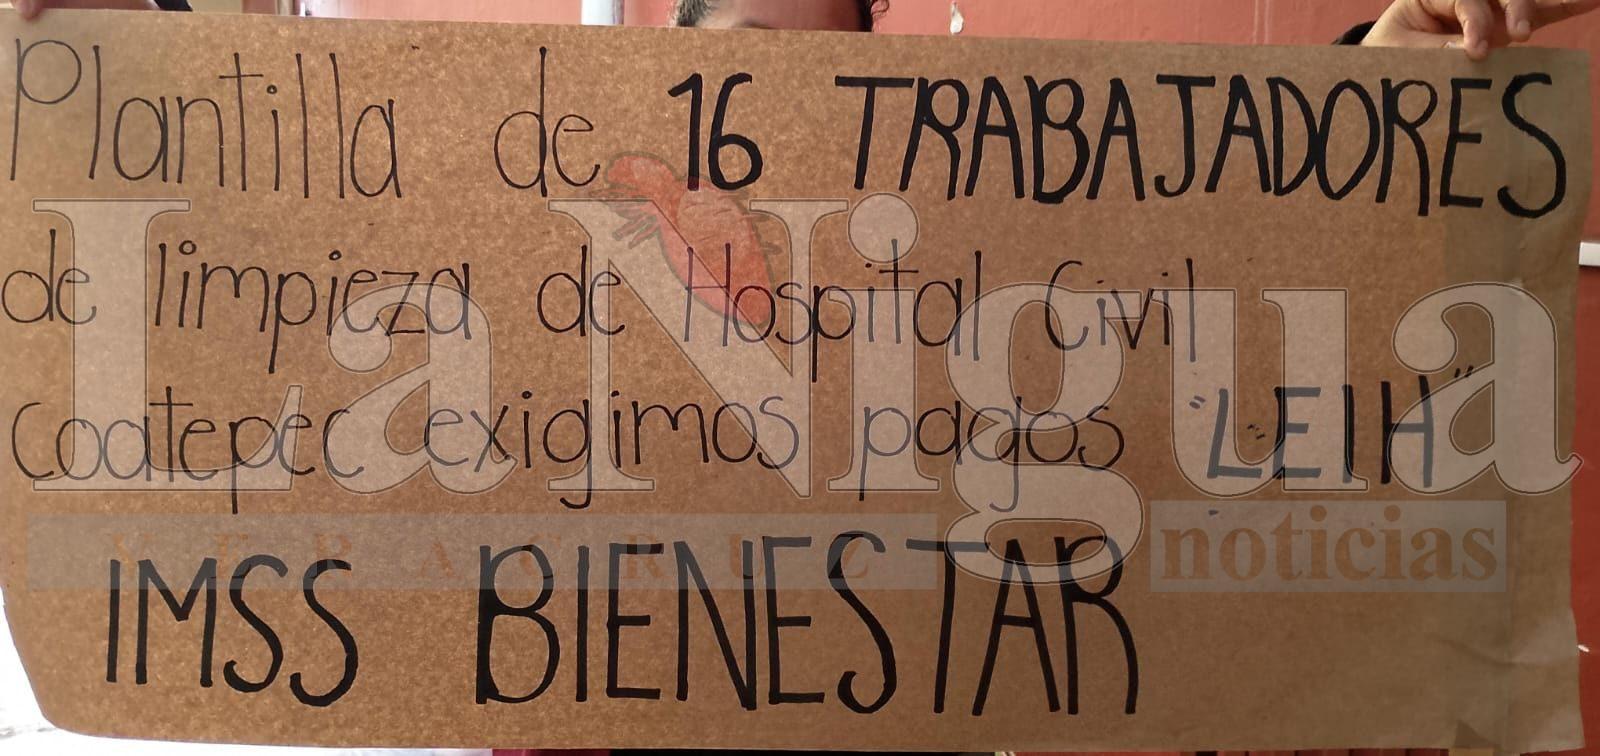 Plantilla de 16 TRABAJADORES
de limpieza de Hospital Civil
Coatepec exigimos pagos "LEIH"
IMSS BIENESTAR
La Nigua
VERACRUZ noticias